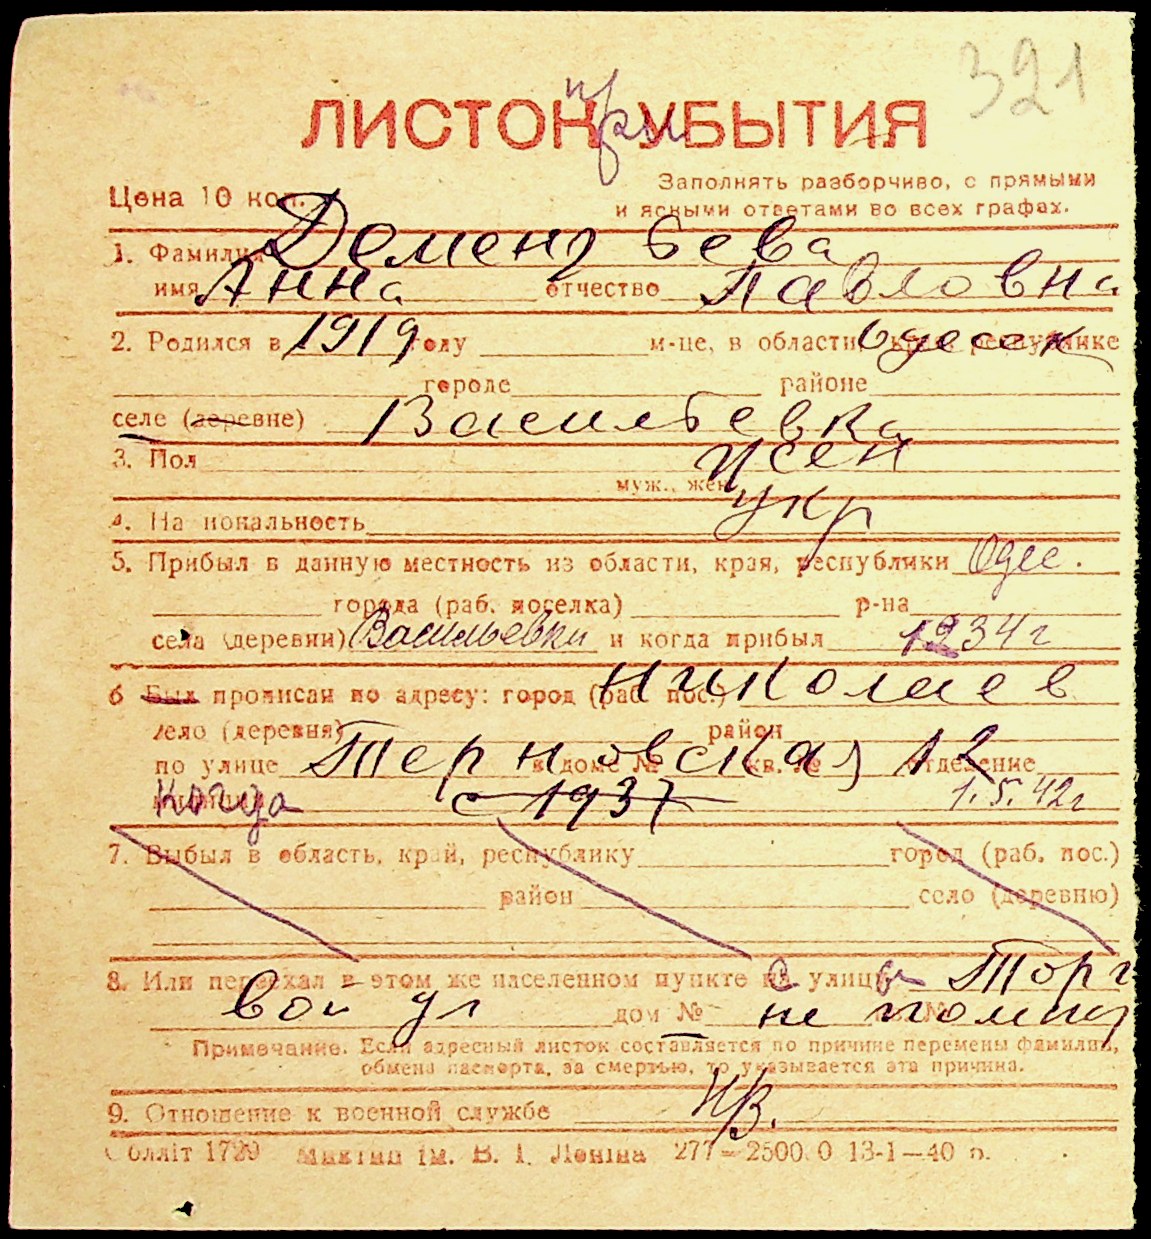 321
ЛИСТОК УБЫТИЯ
при
Цена 10 коп.
Заполнять разборчиво, с прямыми
и ясными ответами во всех графах.
1. Фамилия Дементьева
имя Анна отчество Павловна
2. Родился в 1919 году м-це, в области, края, республике Одесск
городе районе
селе (деревне) Васильевка
3. Пол жен
муж., жен.
укр
4. Национальность
5. Прибыл в данную местность из области, края, республики Одес.
города (раб. поселка) р-на
села (деревни) Васильевки и когда прибыл 1934 г
6 Был прописан по адресу: город (раб. пос.) Николаев
село (деревня) район
по улице Терновская, 12 в доме № кв. № отделение
когда с 1937 1.5.42 г
7. Выбыл в область, край, республику город (раб. пос.)
район село (деревню)
8. Или переехал в этом же населенном пункте на улицу с Торг
вой ул дом № не помню
Примечание. Если адресный листок составляется по причине перемены фамилии,
обмена паспорта, за смертью, то указывается эта причина.
9. Отношение к военной службе НВ.
Облліт 1729 Миктип ім. В. І. Леніна 277—2500.0 13-1—40 р.